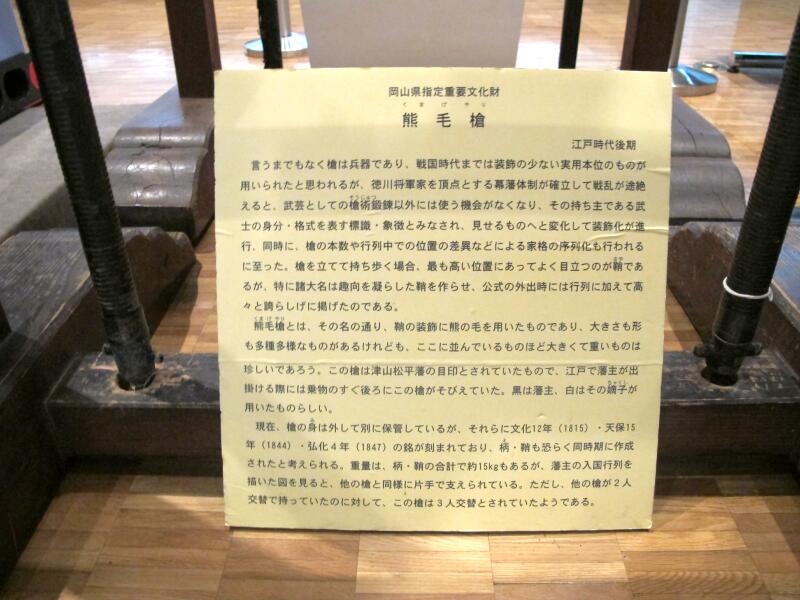 岡山県指定重要文化財
くまげやり
熊毛槍
江戸時代後期
言うまでもなく槍は兵器であり、戦国時代までは装飾の少ない実用本位のものが
用いられたと思われるが、徳川将軍家を頂点とする幕藩体制が確立して戦乱が途絶
えると、武芸としての槍術鍛錬以外には使う機会がなくなり、その持ち主である武
士の身分・格式を表す標識・象徴とみなされ、見せるものへと変化して装飾化が進
行、同時に、槍の本数や行列中での位置の差異などによる家格の序列化も行われる
に至った。槍を立てて持ち歩く場合、最も高い位置にあってよく目立つのが鞘であ
るが、特に諸大名は趣向を凝らした鞘を作らせ、公式の外出時には行列に加えて高
々と誇らしげに掲げたのである。
熊毛槍とは、その名の通り、鞘の装飾に熊の毛を用いたものであり、大きさも形
も多種多様なものがあるけれども、ここに並んでいるものほど大きくて重いものは
珍しいであろう。この槍は津山松平藩の目印とされていたもので、江戸で藩主が出
掛ける際には乗物のすぐ後ろにこの槍がそびえていた。黒は藩主、白はその嫡子が
用いたものらしい。
現在、槍の身は外して別に保管しているが、それらに文化12年（1815）・天保15
年（1844）・弘化４年（1847）の銘が刻まれており、柄・鞘も恐らく同時期に作成
されたと考えられる。重量は、柄・鞘の合計で約15kgもあるが、藩主の入国行列を
描いた図を見ると、他の槍と同様に片手で支えられている。ただし、他の槍が２人
交替で持っていたのに対して、この槍は３人交替とされていたようである。